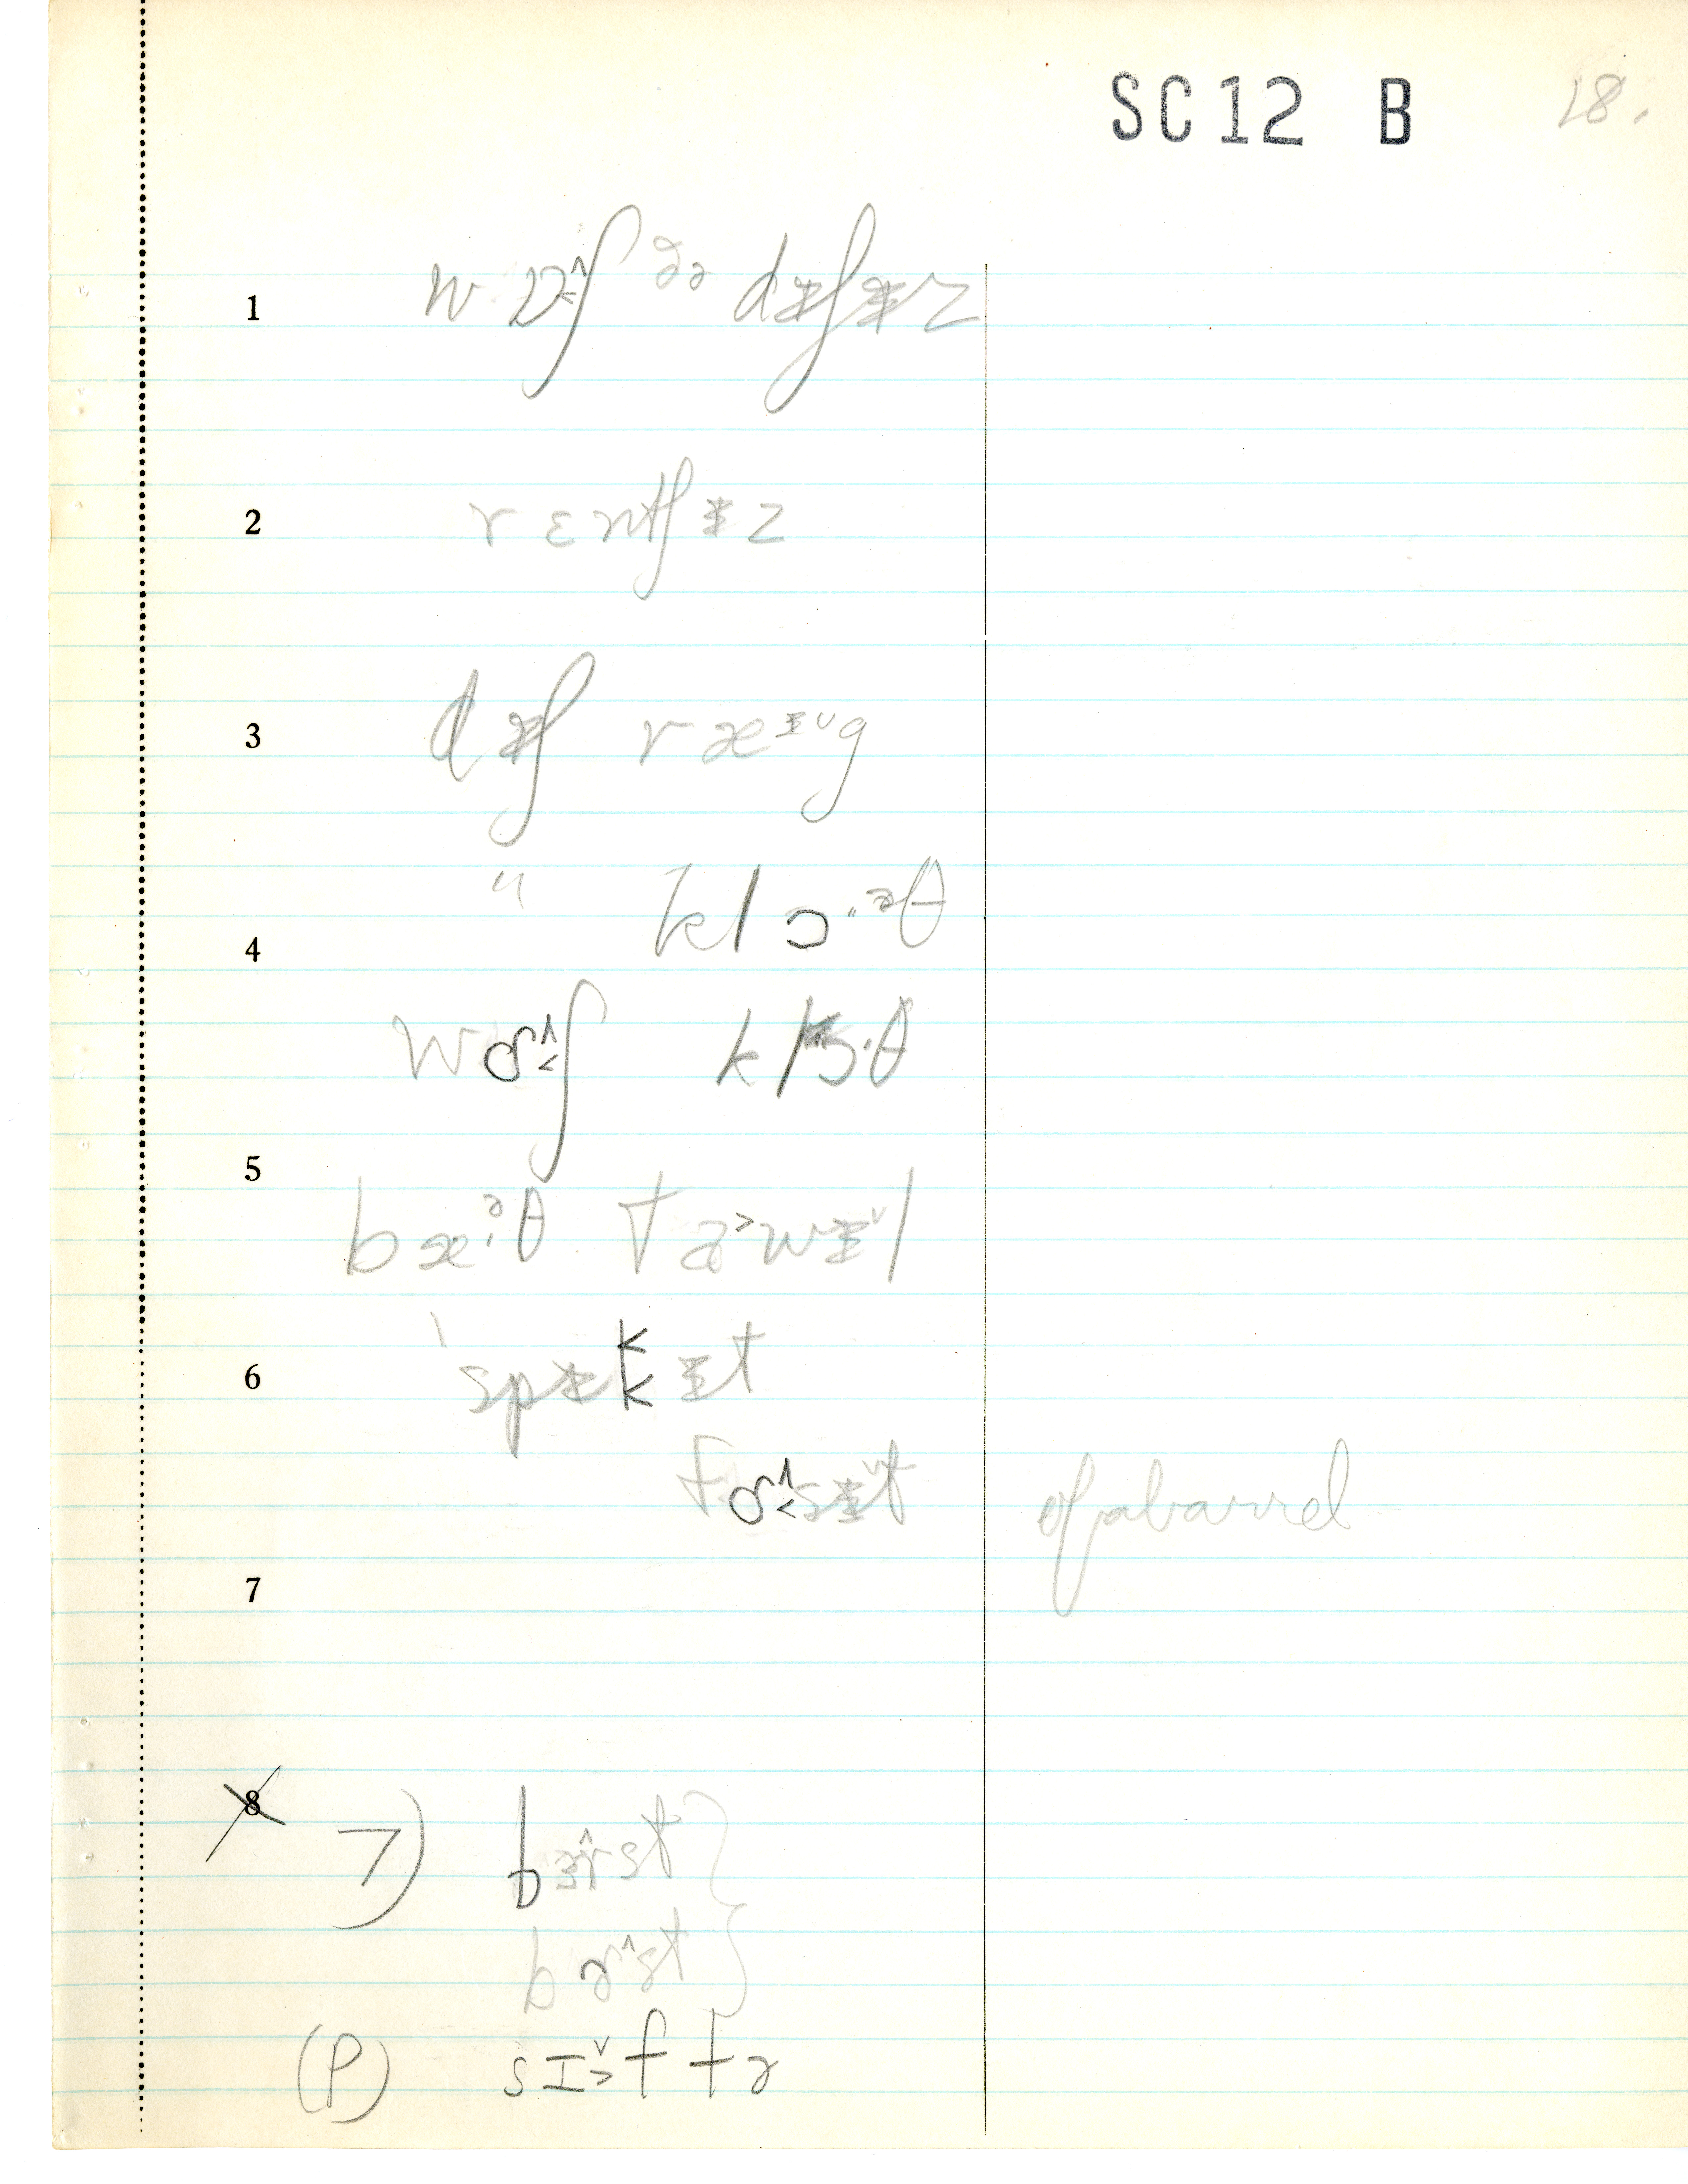 SC12 B 18.
1 wɒ˄˂ʃ ðə dɨʃɨz
2 rɛntʃɨz
3 dɨʃ ræᵻ˅g
" klɔ·ᵊθ
4
wɑ˄˂ʃ klɔ·θ
5
bæ·ᵊθ ta˃wɨ˅l
6 spɨkɨt
fɔ˄˂sɨ˅t of a barrel
7
8 7) bɜ˄rst
bɚ˄st
(P) sɪ˅˃ftɚ